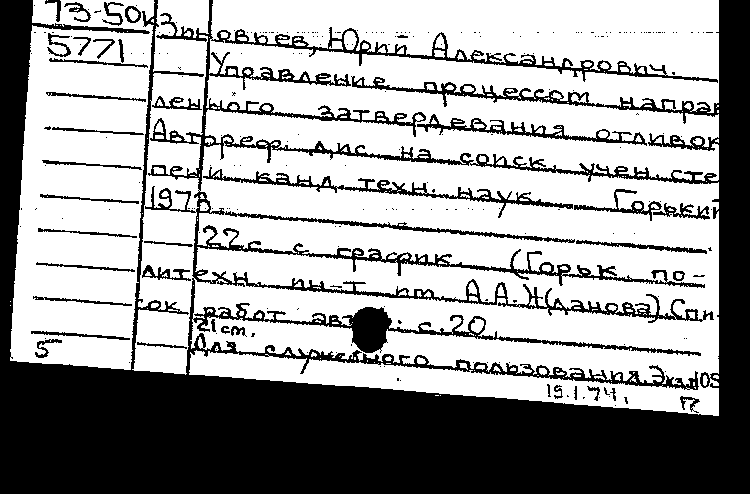 73-50к Зиновьев, Юрий Александрович.
5771
Управление процессом направ
ленного затвердевания отливок
Автореф. дис. на соиск. учен. сте
пени канд. техн. наук. Горький
1973
22 с. с график. (Горьк. по-
литехн. ин-т им. А.А. Жданова). Спи-
сок работ авт : с. 20.
21 см.
Для служебного пользования. Экз. 108
5
19.1.74г.